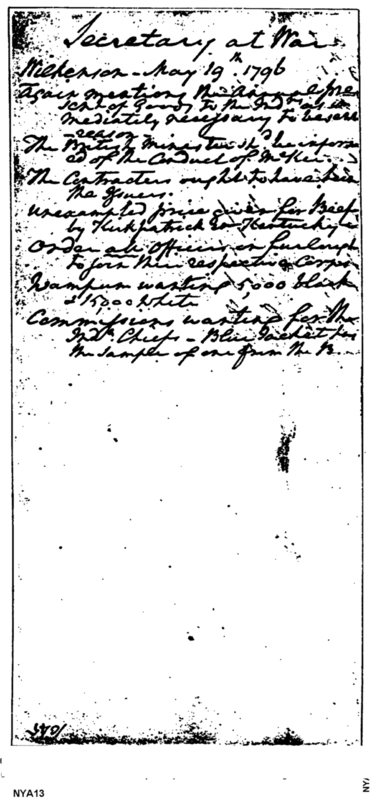 Secretary at War
Wilkenson - May 19th. 1796
Again mentions the Annual pre
sent of Goods to the Inds. as im
mediately necessary to be sent
The British Minister shd. be inform
ed of the Conduct of McKee
The Contractors ought to have been
the
unexampled price given for Beef
by Kirkpatrick in Kentucky
Order all Officers on furlough
to join their respective Corps
Wampum wanting 5,000 black
& 15,000 white
Commissions wanting for the
Indn. Chiefs - Blue Jacket has
the sample of one from the B
NYA13